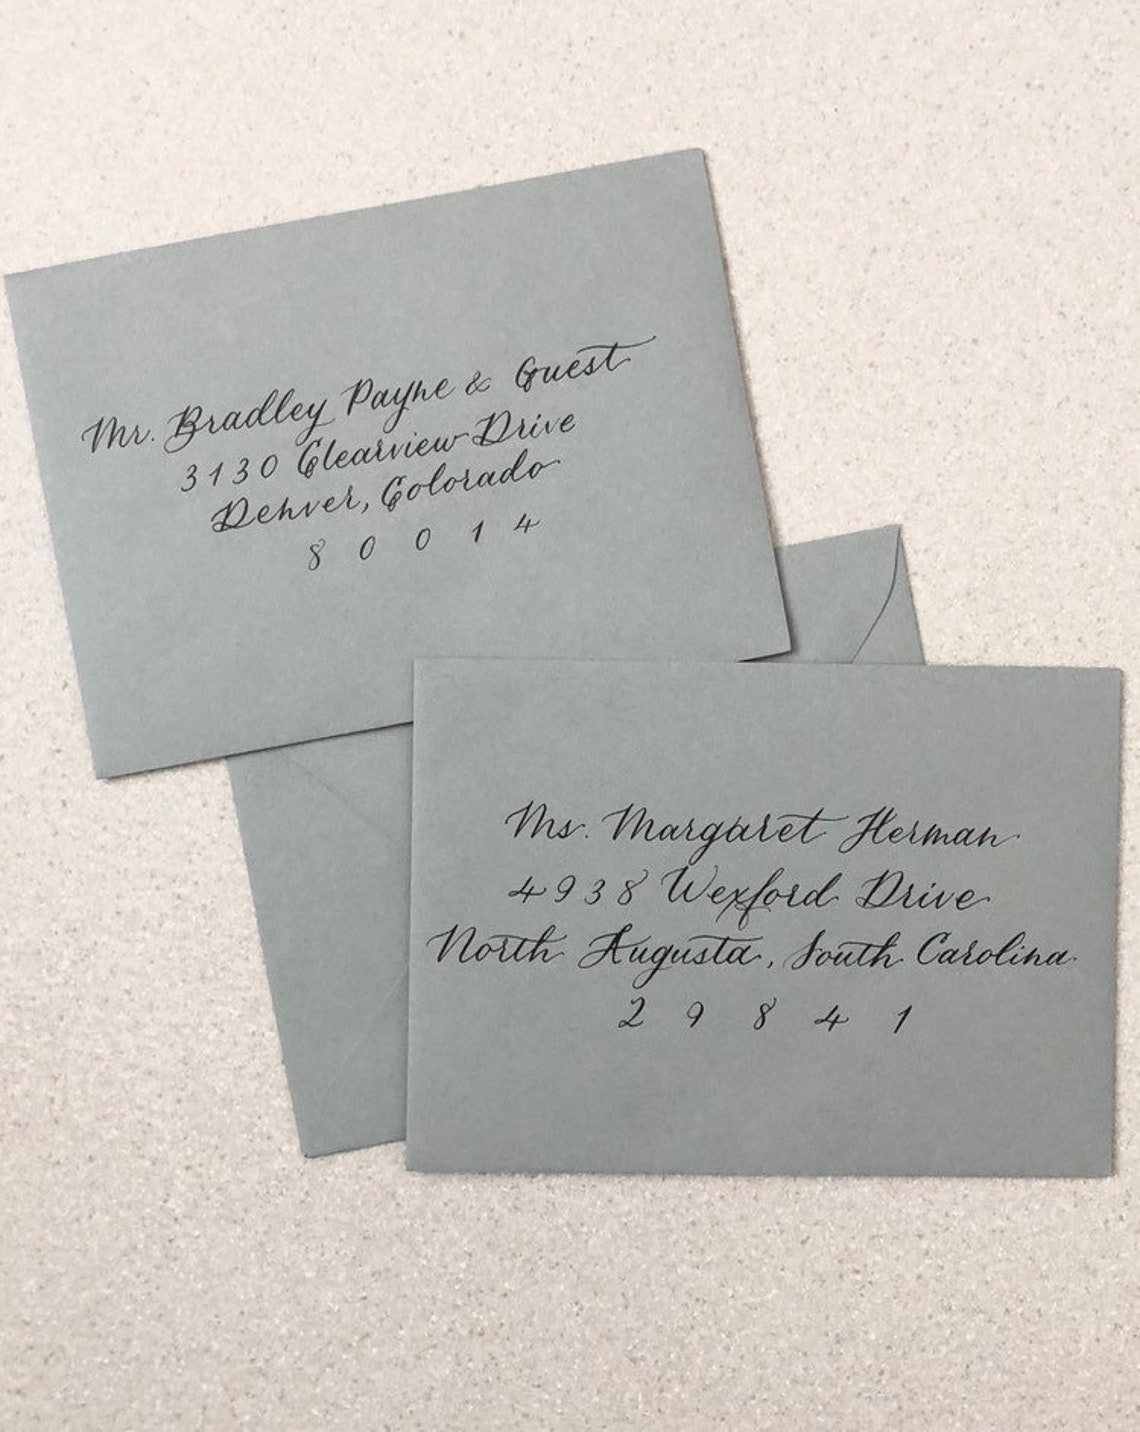 Mr. Bradley Payne & Guest
3130 Clearview Drive
Denver, Colorado
8 0 0 1 4
Ms. Margaret Herman
4938 Wexford Drive
North Augusta, South Carolina
2 9 8 4 1